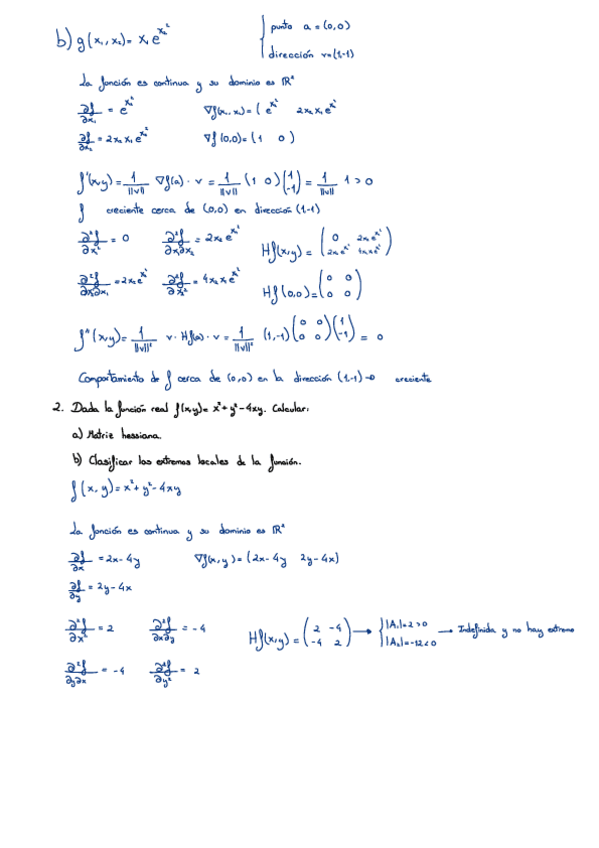 b) g(x₁, x₂) = x₁e^(x₂²)   { punto a = (0,0)
dirección v=(1,-1)
La función es continua y su dominio es ℝ²
∂f/∂x₁ = e^(x₂²)   ∇f(x₁, x₂) = (e^(x₂²)  2x₂x₁e^(x₂²)
∂f/∂x₂ = 2x₂x₁e^(x₂²)   ∇f(0,0) = (1  0)
f'(x,y) = 1/||v|| ∇f(a)·v = 1/||v|| (1  0)(1 -1) = 1/||v|| 1 > 0
f creciente cerca de (0,0) en dirección (1,-1)
∂²f/∂x₁² = 0   ∂²f/∂x₁∂x₂ = 2x₂e^(x₂²)   Hf(x,y) =
∂²f/∂x₂∂x₁ = 2x₂e^(x₂²)   ∂²f/∂x₂² = 4x₂x₁e^(x₂²)   Hf(0,0) = (0 0 0 0)
f''(x,y) = 1/||v||² v·Hf(a)·v = 1/||v||² (1,-1)(0 0 0 0)(1 -1) = 0
Comportamiento de f cerca de (0,0) en la dirección (1,-1) → creciente
2. Dada la función real f(x,y) = x²+y²-4xy. Calcular:
a) Matriz hessiana.
b) Clasificar los extremos locales de la función.
f(x, y) = x²+y²-4xy
La función es continua y su dominio es ℝ²
∂f/∂x = 2x-4y   ∇f(x,y) = (2x-4y  2y-4x)
∂f/∂y = 2y-4x
∂²f/∂x² = 2   ∂²f/∂x∂y = -4   Hf(x,y) = (2 -4 -4 2) → { |A₁|=2>0 |A₂|=-12<0 → Indefinida y no hay extremo
∂²f/∂y∂x = -4   ∂²f/∂y² = 2